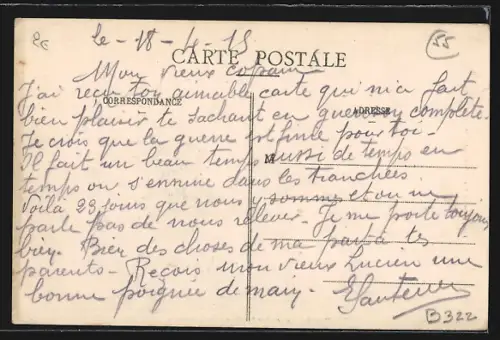 2€
Le - 18 - 4 - 15
55
CARTE POSTALE
Mon vieux copain
J'ai reçu ton aimable carte qui m'a fait
CORRESPONDANCE
ADRESSE
bien plaisir te sachant en complète.
Je crois que la guerre est finie pour toi -
Il fait un beau temps aussi de temps en
M
temps on s'ennuie dans les tranchées
Voilà 23 jours que nous y sommes et on ne
parle pas de nous relever. Je me porte toujours
bien. Bien des choses de ma part à tes
parents - Reçois mon vieux Lucien une
bonne poignée de main.
B322